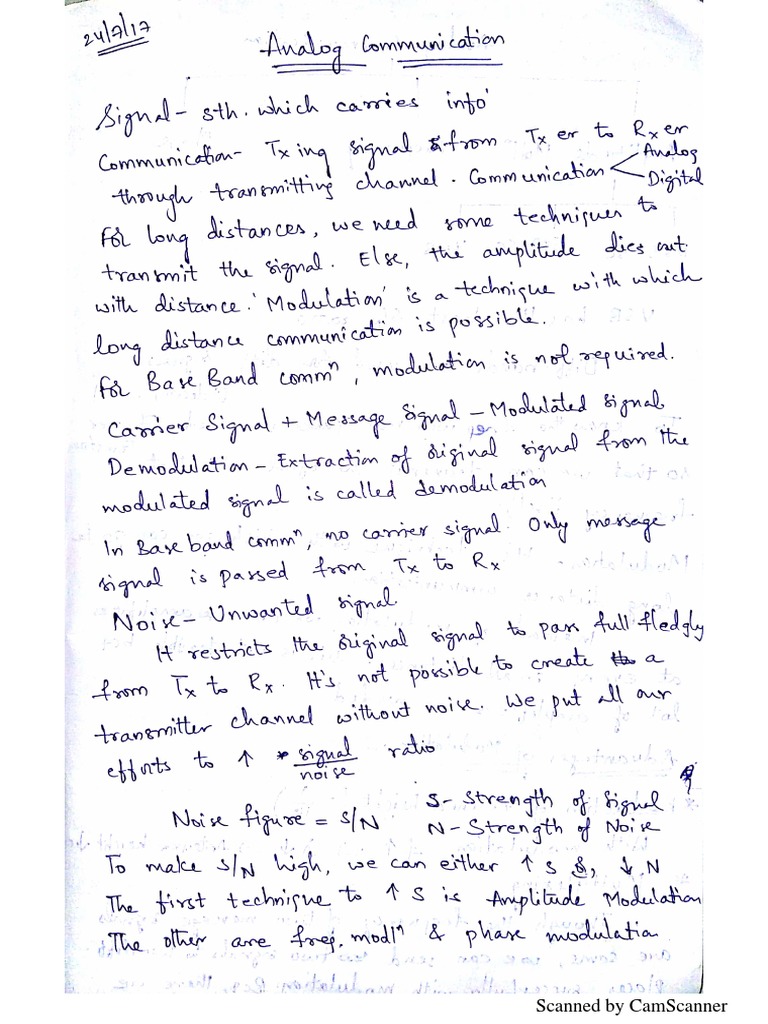 24/7/17
Analog Communication
Signal - sth. which carries info'
Communication - Txing signal from Txer to Rxer
through transmitting channel. Communication < Analog
Digital
For long distances, we need some techniques to
transmit the signal. Else, the amplitude dies out
with distance. 'Modulation' is a technique with which
long distance communication is possible.
For Base Band commⁿ, modulation is not required.
Carrier Signal + Message Signal - Modulated signal
Demodulation - Extraction of original signal from the
modulated signal is called demodulation
In Base band commⁿ, no carrier signal. Only message
signal is passed from Tx to Rx
Noise - Unwanted signal
It restricts the original signal to pass full fledgly
from Tx to Rx. It's not possible to create a
transmitter channel without noise. We put all our
efforts to ↑ signal/noise ratio
Noise figure = S/N
S - Strength of Signal
N - Strength of Noise
To make S/N high, we can either ↑ S &, ↓ N
The first technique to ↑ S is Amplitude Modulation
The other are freq. modlⁿ & phase modulation
Scanned by CamScanner